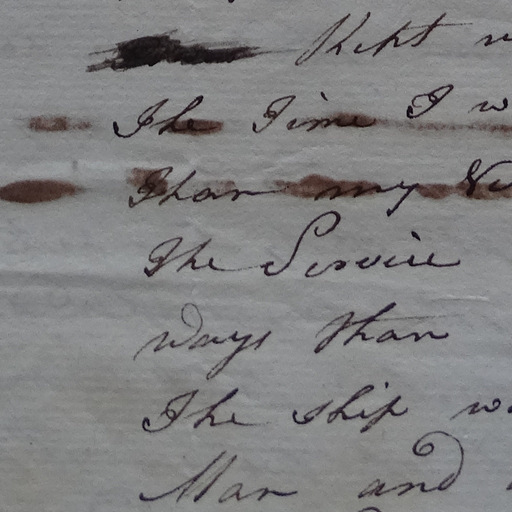 Kept
The Time I w
than my
the Servise
ways than
The ship w
Man and